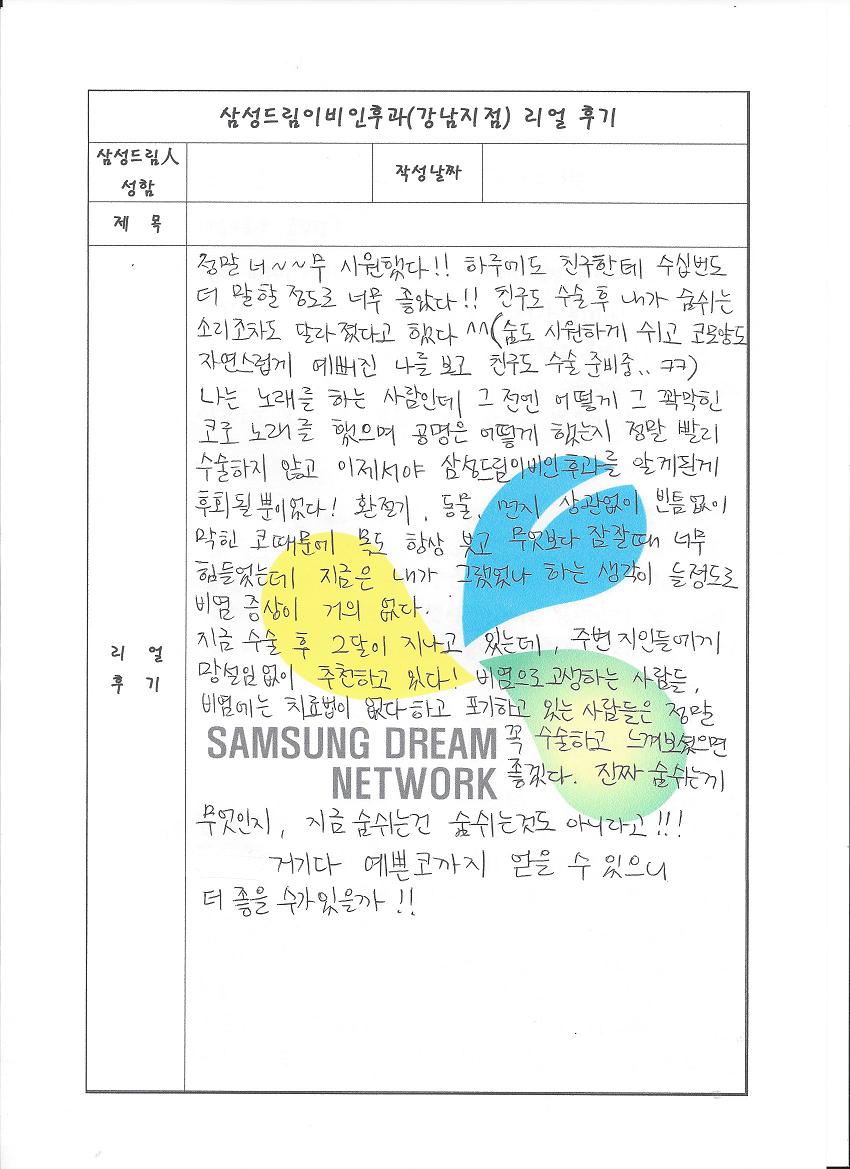 삼성드림이비인후과(강남지점) 리얼 후기
삼성드림人
성함
작성날짜
제 목
정말 너~~무 시원했다!! 하루에도 친구한테 수십번도
더 말할 정도로 너무 좋았다!! 친구도 수술 후 내가 숨쉬는
소리조차도 달라졌다고 했다 ^^(숨도 시원하게 쉬고 코모양도
자연스럽게 예뻐진 나를 보고 친구도 수술 준비중.. ㅋㅋ)
나는 노래를 하는 사람인데 그 전엔 어떻게 그 꽉막힌
코로 노래를 했으며 공명은 어떻게 했는지 정말 빨리
수술하지 않고 이제서야 삼성드림이비인후과를 알게된게
후회될 뿐이었다! 환절기, 동물, 먼지 상관없이 빈틈없이
막힌 코때문에 목도 항상 붓고 무엇보다 잠잘때 너무
힘들었는데 지금은 내가 그랬었나 하는 생각이 들정도로
비염 증상이 거의 없다.
지금 수술 후 2달이 지나고 있는데, 주변 지인들에게
망설임없이 추천하고 있다! 비염으로 고생하는 사람들,
비염에는 치료법이 없다하고 포기하고 있는 사람들은 정말
꼭 수술하고 느껴보셨으면
좋겠다. 진짜 숨쉬는게
무엇인지, 지금 숨쉬는건 숨쉬는것도 아니라고!!!
거기다 예쁜코까지 얻을 수 있으니
더 좋을 수가있을까!!
리 얼
후 기
SAMSUNG DREAM
NETWORK